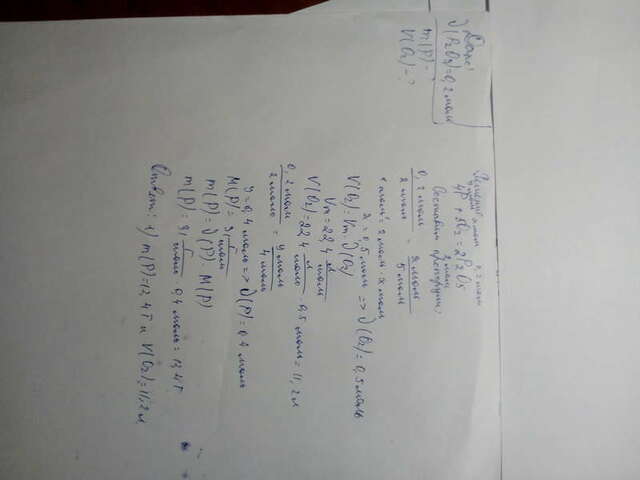 Дано:
ν(P₂O₅)=0,2 моль
m(P)-?
V(O₂)-?
Решение:
y моль x моль 0,2 моль
4P + 5O₂ = 2P₂O₅
2 моль
Составим пропорцию:
0,2 моль / 2 моль = x моль / 5 моль
1 моль² = 2 моль · x моль
x = 0,5 моль => ν(O₂) = 0,5 моль
V(O₂) = Vm · ν(O₂)
Vm = 22,4 л/моль
V(O₂) = 22,4 л/моль · 0,5 моль = 11,2 л
0,2 моль / 2 моль = y моль / 4 моль
y = 0,4 моль => ν(P) = 0,4 моль
M(P) = 31 г/моль
m(P) = ν(P) · M(P)
m(P) = 31 г/моль · 0,4 моль = 12,4 г
Ответ: 1) m(P)=12,4 г и V(O₂)=11,2 л